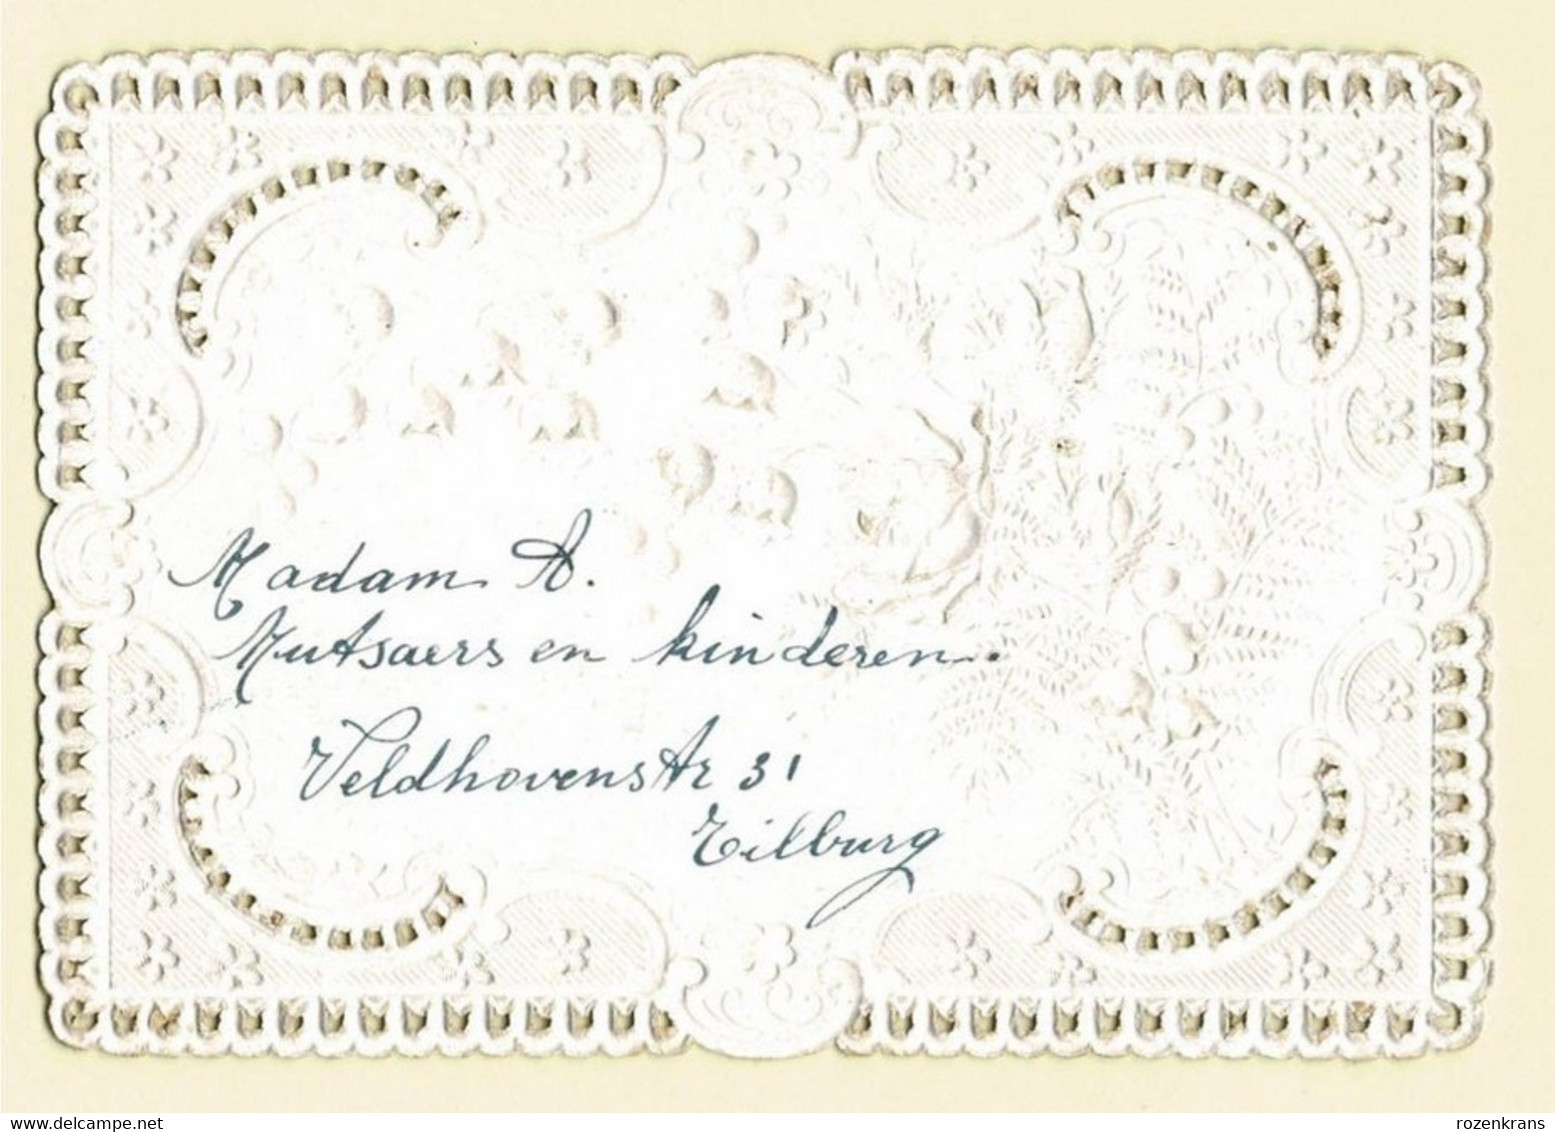 Madam A.
Mutsaers en kinderen.
Veldhovenstr 31
Tilburg
www.delcampe.net
rozenkrans